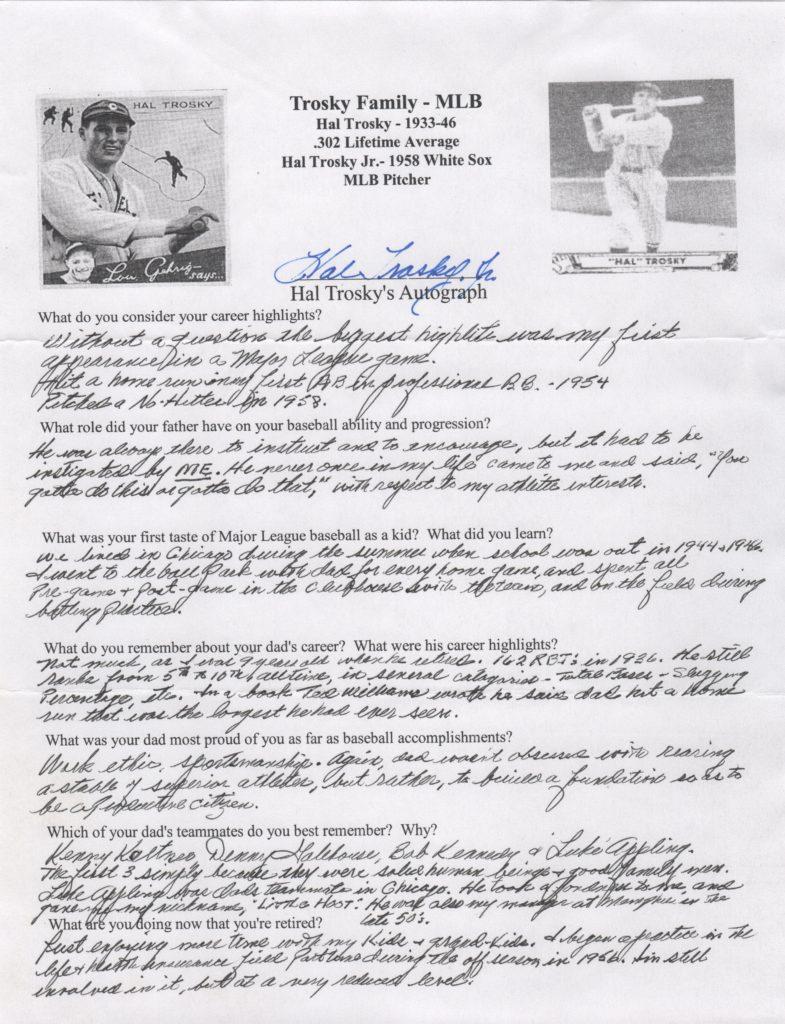 HAL TROSKY
Lou Gehrig says...
Trosky Family - MLB
Hal Trosky - 1933-46
.302 Lifetime Average
Hal Trosky Jr.- 1958 White Sox
MLB Pitcher
"HAL" TROSKY
Hal Trosky, Jr.
Hal Trosky's Autograph
What do you consider your career highlights?
Without a question the biggest highlite was my first
appearance in a Major League game.
Hit a home run in my first AB in professional B.B. - 1954
Pitched a No-Hitter in 1958.
What role did your father have on your baseball ability and progression?
He was always there to instruct and to encourage, but it had to be
instigated by ME. He never once in my life came to me and said, "You
gotta do this or gotta do that," with respect to my athletic interests.
What was your first taste of Major League baseball as a kid? What did you learn?
We lived in Chicago during the summer when school was out in 1944 + 1946.
I went to the ball Park with dad for every home game, and spent all
Pre-game + Post-game in the Clubhouse with the team, and on the field during
batting practice.
What do you remember about your dad's career? What were his career highlights?
Not much, as I was 9 years old when he retired. 162 RBI's in 1936. He still
ranks from 5th to 10th alltime, in several catagories - Total Bases - Slugging
Percentage, etc. In a book Ted Williams wrote he said dad hit a home
run that was the longest he had ever seen.
What was your dad most proud of you as far as baseball accomplishments?
Work ethic, sportsmanship. Again, dad wasn't obsessed with rearing
a stable of superior athletes, but rather, to build a foundation so as to
be a citizen.
Which of your dad's teammates do you best remember? Why?
Kenny Keltner, Denny Galehouse, Bob Kennedy & Luke Appling.
The first 3 simply because they were solid human beings + good family men.
Luke Appling was dads teammate in Chicago. He took a to me, and
gave my nickname, "Little Hoot". He was also my manager at Memphis in the
late 50's.
What are you doing now that you're retired?
Just enjoying more time with my Kids + grand-Kids. I began a practice in the
life + health insurance field during the off season in 1956. I'm still
involved in it, but at a very reduced level.